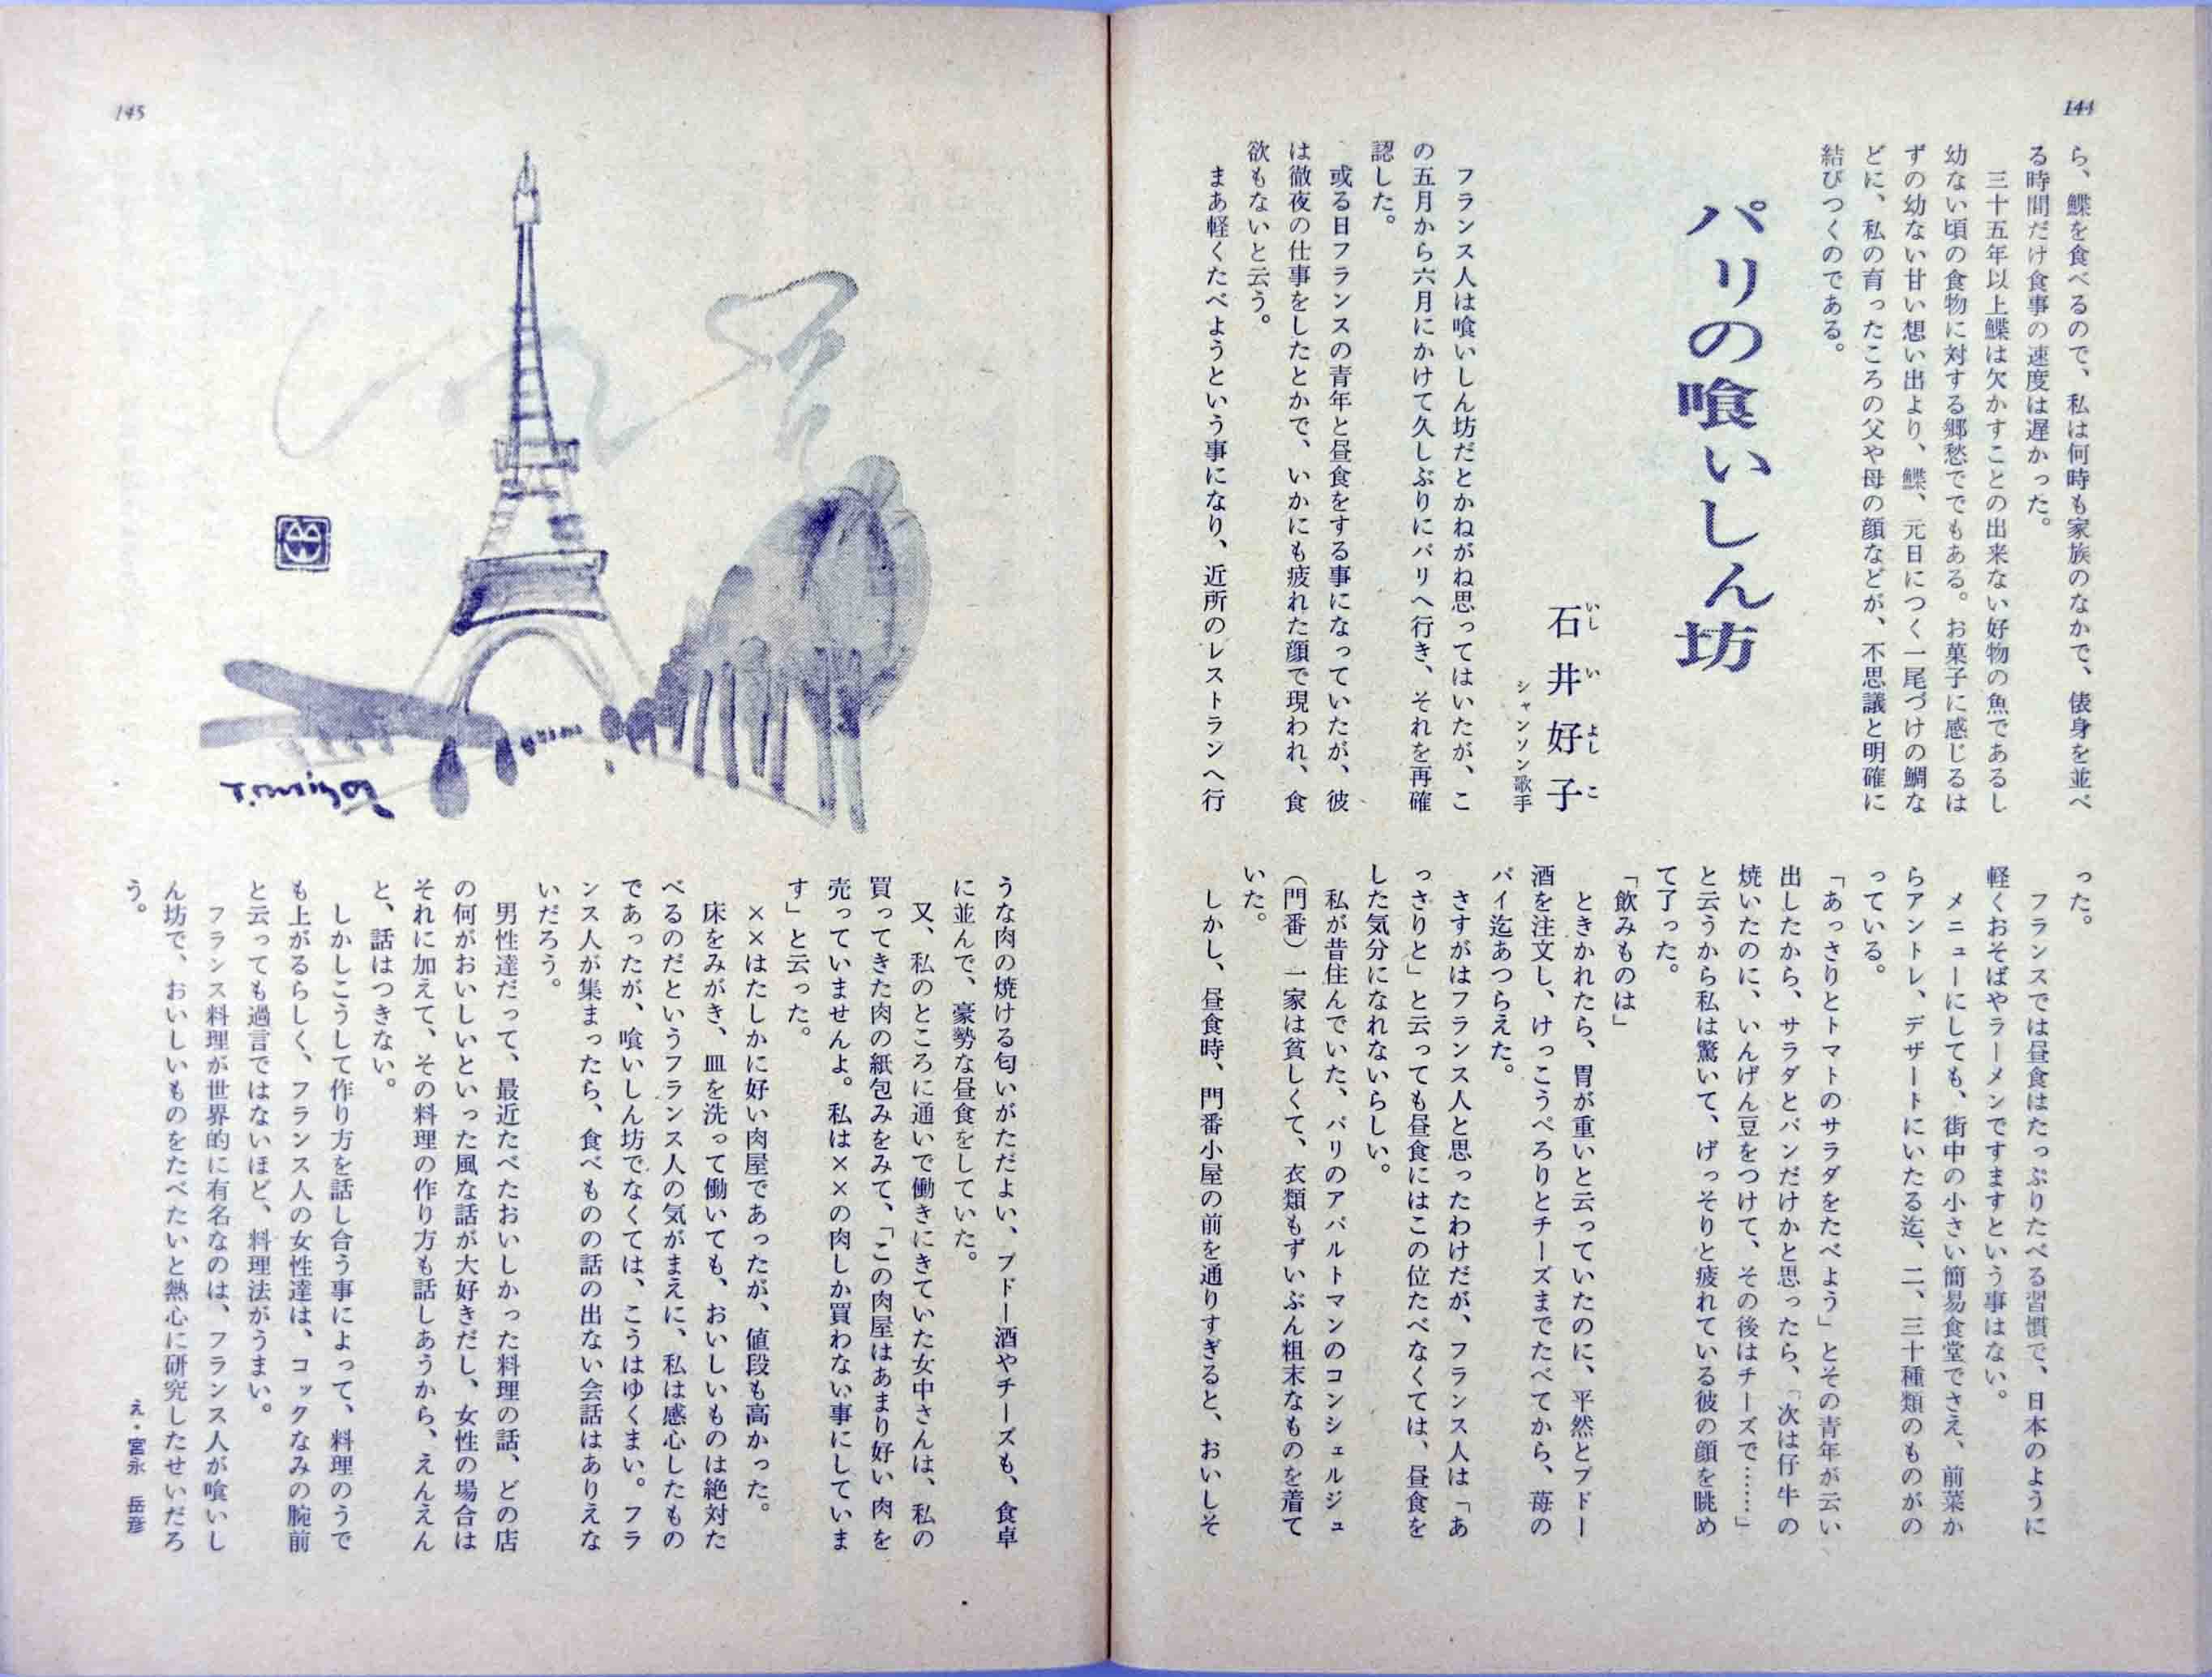 144
ら、鰈を食べるので、私は何時も家族のなかで、俵身を並べ
る時間だけ食事の速度は遅かった。
三十五年以上鰈は欠かすことの出来ない好物の魚であるし
幼ない頃の食物に対する郷愁ででもある。お菓子に感じるは
ずの幼ない甘い想い出より、鰈、元日につく一尾づけの鯛な
どに、私の育ったころの父や母の顔などが、不思議と明確に
結びつくのである。
パリの喰いしん坊
石井好子
いしいよしこ
シャンソン歌手
フランス人は喰いしん坊だとかねがね思ってはいたが、こ
の五月から六月にかけて久しぶりにパリへ行き、それを再確
認した。
或る日フランスの青年と昼食をする事になっていたが、彼
は徹夜の仕事をしたとかで、いかにも疲れた顔で現われ、食
欲もないと云う。
まあ軽くたべようという事になり、近所のレストランへ行
った。
フランスでは昼食はたっぷりたべる習慣で、日本のように
軽くおそばやラーメンですますという事はない。
メニューにしても、街中の小さい簡易食堂でさえ、前菜か
らアントレ、デザートにいたる迄、二、三十種類のものがの
っている。
「あっさりとトマトのサラダをたべよう」とその青年が云い
出したから、サラダとパンだけかと思ったら、「次は仔牛の
焼いたのに、いんげん豆をつけて、その後はチーズで……」
と云うから私は驚いて、げっそりと疲れている彼の顔を眺め
て了った。
「飲みものは」
ときかれたら、胃が重いと云っていたのに、平然とブドー
酒を注文し、けっこうぺろりとチーズまでたべてから、苺の
パイ迄あつらえた。
さすがはフランス人と思ったわけだが、フランス人は「あ
っさりと」と云っても昼食にはこの位たべなくては、昼食を
した気分になれないらしい。
私が昔住んでいた、パリのアパルトマンのコンシェルジュ
(門番)一家は貧しくて、衣類もずいぶん粗末なものを着て
いた。
しかし、昼食時、門番小屋の前を通りすぎると、おいしそ
145
うな肉の焼ける匂いがただよい、ブドー酒やチーズも、食卓
に並んで、豪勢な昼食をしていた。
又、私のところに通いで働きにきていた女中さんは、私の
買ってきた肉の紙包みをみて、「この肉屋はあまり好い肉を
売っていませんよ。私は××の肉しか買わない事にしていま
す」と云った。
××はたしかに好い肉屋であったが、値段も高かった。
床をみがき、皿を洗って働いても、おいしいものは絶対た
べるのだというフランス人の気がまえに、私は感心したもの
であったが、喰いしん坊でなくては、こうはゆくまい。フラ
ンス人が集まったら、食べものの話の出ない会話はありえな
いだろう。
男性達だって、最近たべたおいしかった料理の話、どの店
の何がおいしいといった風な話が大好きだし、女性の場合は
それに加えて、その料理の作り方も話しあうから、えんえん
と、話はつきない。
しかしこうして作り方を話し合う事によって、料理のうで
も上がるらしく、フランス人の女性達は、コックなみの腕前
と云っても過言ではないほど、料理法がうまい。
フランス料理が世界的に有名なのは、フランス人が喰いし
ん坊で、おいしいものをたべたいと熱心に研究したせいだろ
う。
え・宮永 岳彦